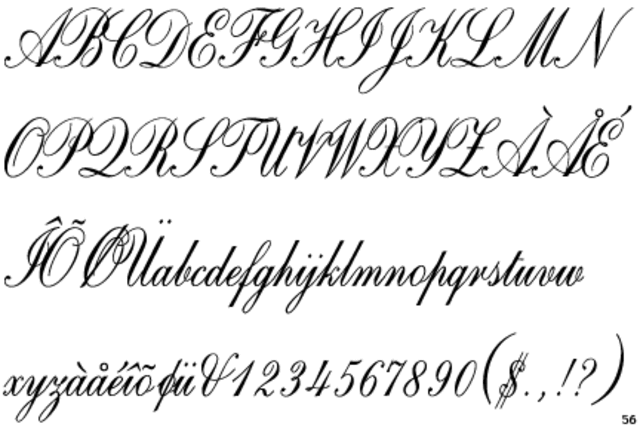 ABCDEFGHIJKLMN
OPQRSTUVWXYZÀÅÉ
ÎÕØÜabcdefghijklmnopqrstuvw
xyzàåéîõøü&1234567890($.,!?)
56